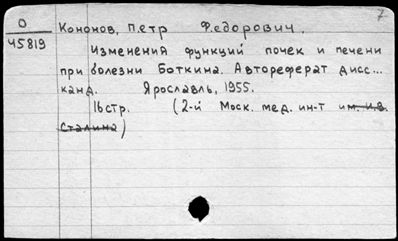 7
О
Ч5819
Кононов, Петр Федорович.
Изменения функций почек и печени
при болезни Боткина. Автореферат дисс...
канд. Ярославль, 1955.
16стр. (2-й Моск. мед. ин-т им. И.В.
Сталина)